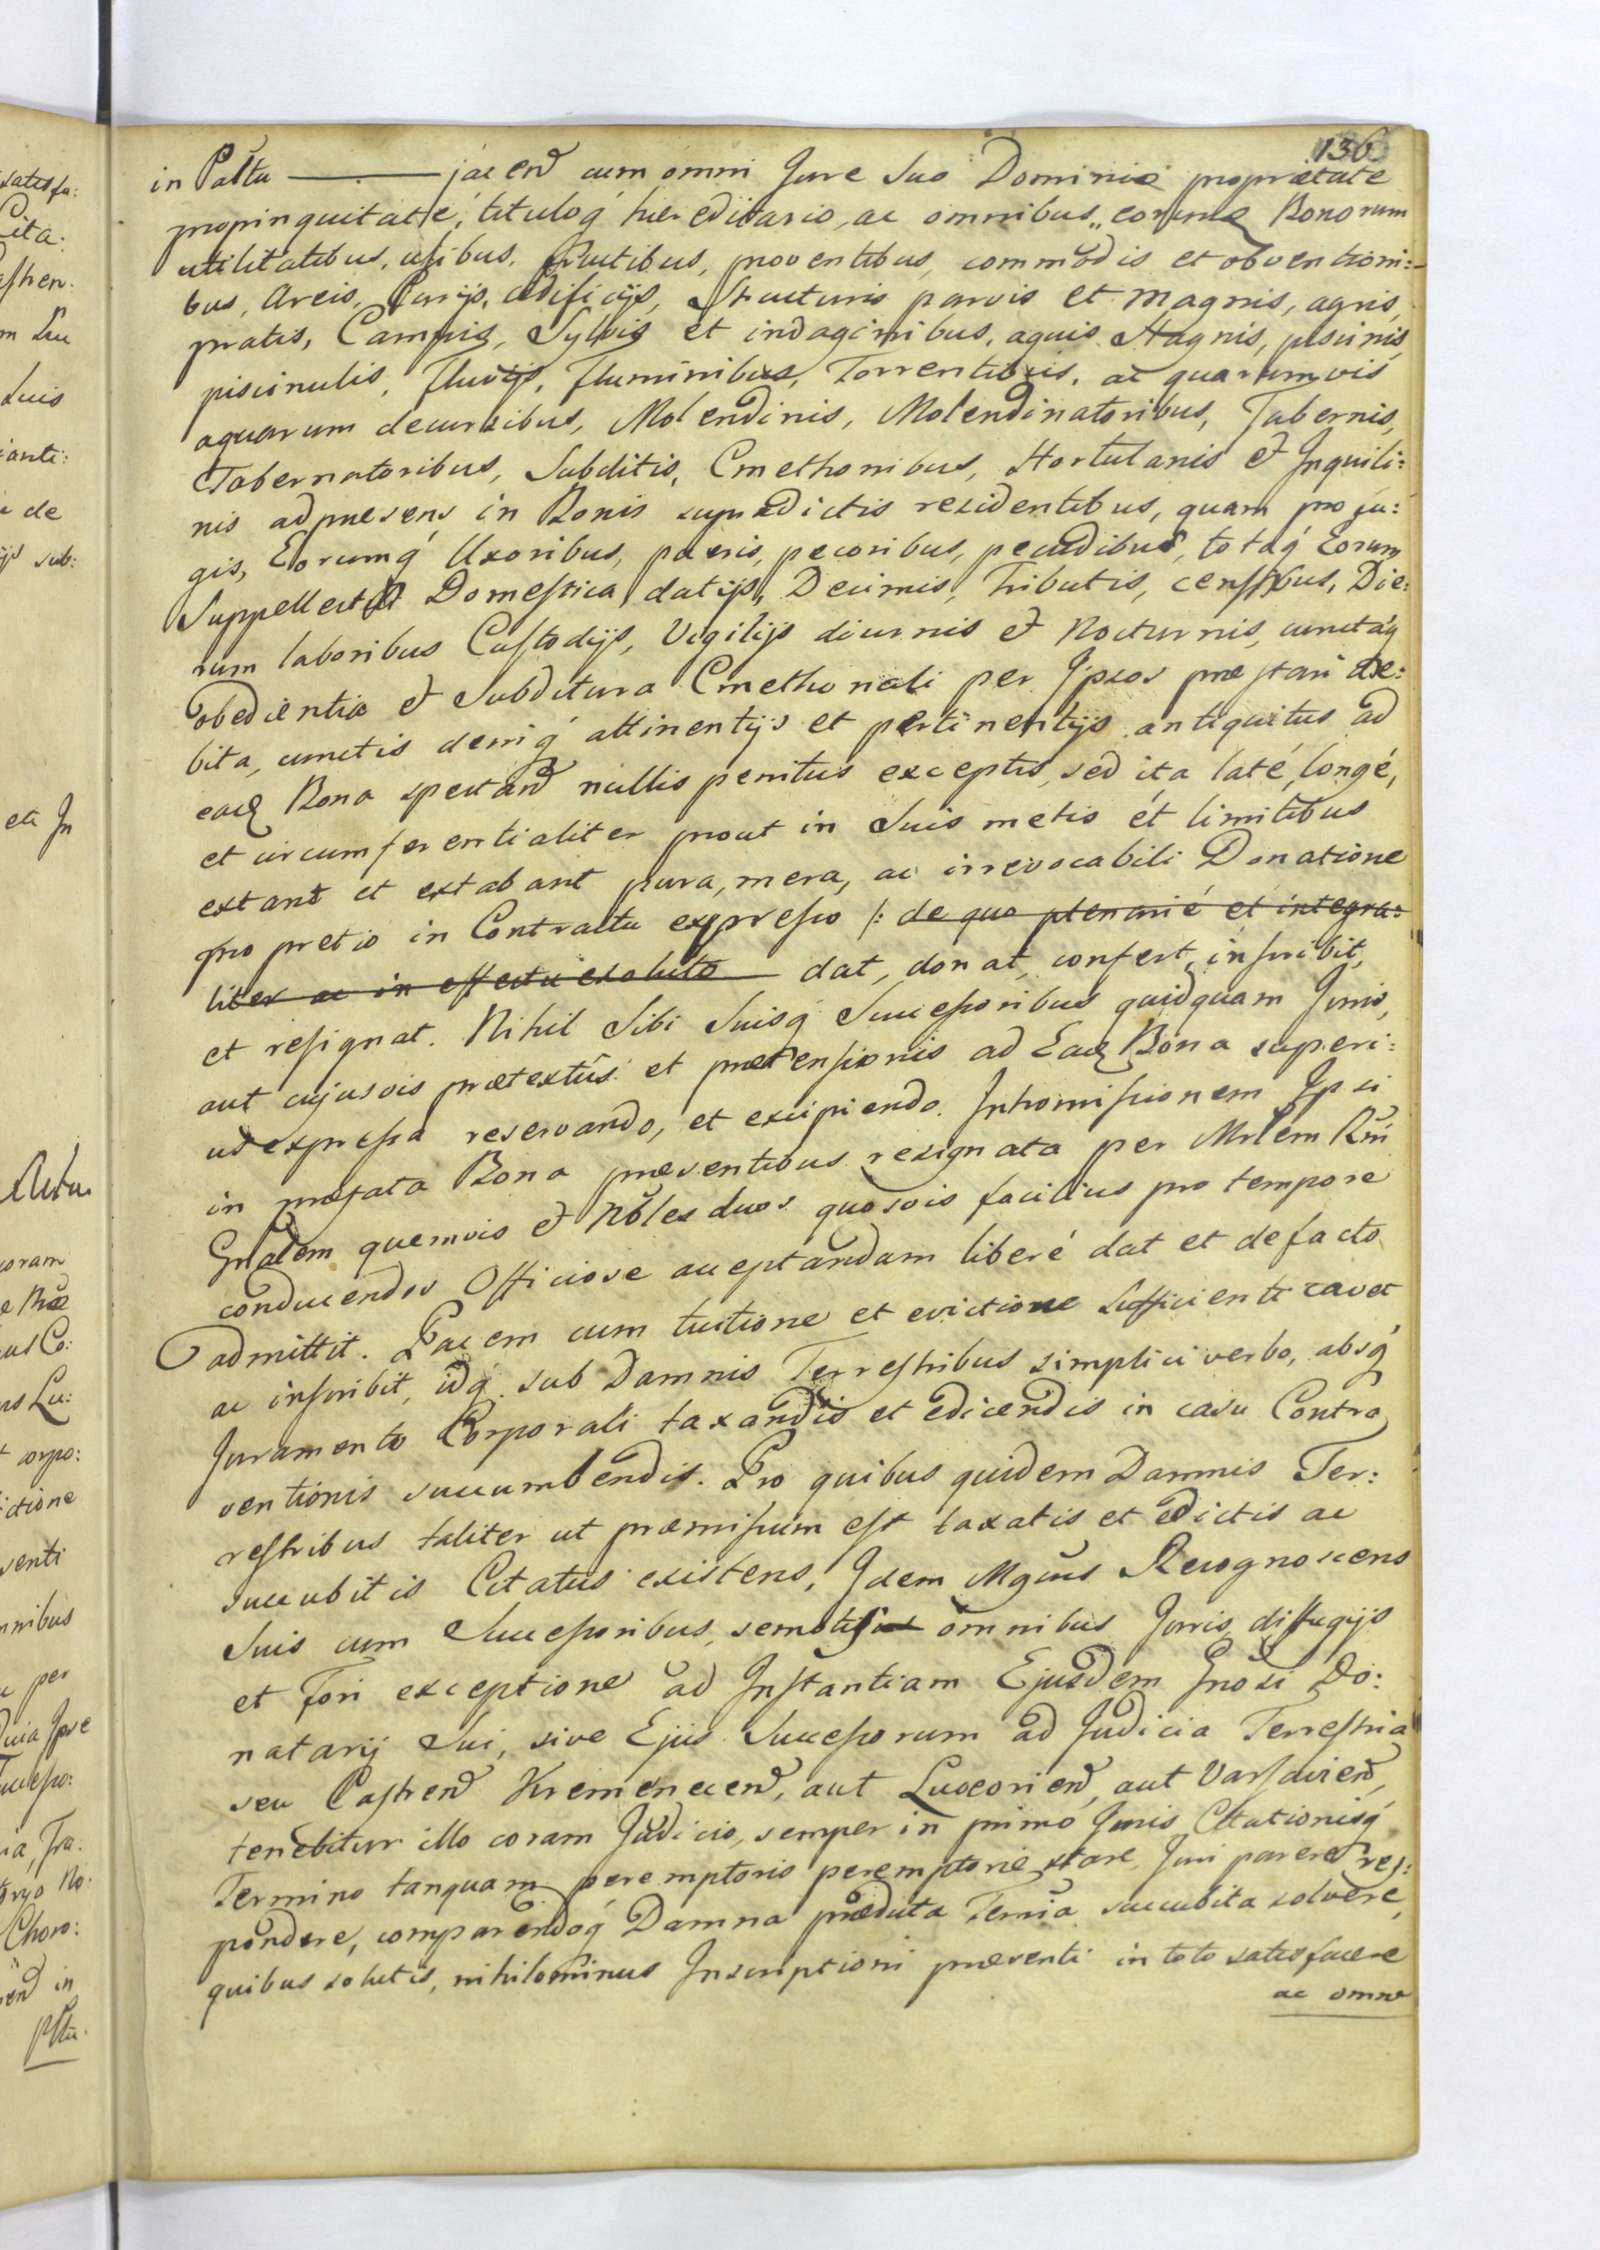 136
in Pałtu ——— jacend cum omni Jure Suo Dominio proprietate
propinquitate, tituloq́ hereditario, ac omnibus eorumq Bonorum
utilitatibus, usibus, fructibus, proventibus, commodis et obventioni:
bus, Areis, Curijs, ædificijs, Structuris parvis et magnis, agris,
pratis, Campis, Sylvis et indaginibus, aquis Stagnis, piscinis,
piscinulis, Fluvijs, Fluminibus, Torrentibus, ac quarumvis
aquarum decursibus, Molendinis, Molendinatoribus, Tabernis,
Tabernatoribus, Subditis, Cmethonibus, Hortulanis et Inquili:
nis ad præsens in Bonis supradictis residentibus, quam profu:
gis, Eorumq́ Uxoribus, pueris, pecoribus, pecudibus, totaq́ Eorum
Suppellectili Domestica, datijs, Decimis, Tributis, censibus, Die:
rum laboribus Custodijs, Vigilijs diurnis et Nocturnis, cunctaq́
obedientia et Subditura Cmethonali per Ipsos præstari de:
bita, cunctis deniq́ attinentijs et pertinentijs antiquitus ad
eadꝫ Bona spectand nullis penitus exceptis, sed ita laté, longé,
et circumferentialiter prout in Suis metis et limitibus
extant et extabant pura, mera, ac irrevocabili Donatione
pro pretio in Contractu expresso /: de quo plenarié et integra:
liter ac in effectu exoluto — dat, donat, confert, inscribit,
et resignat. Nihil Sibi Suisq́ Successoribus quidquam Juris,
aut cujusvis prætextûs et prætensionis ad Eadꝫ Bona superi:
us expressa reservando, et excipiendo. Intromissionem Ipsi
in præfata Bona præsentibus resignata per Mrlem Rni
Gnalem quemvis et Nobles duos quosvis facilius pro tempore
conducendos Officiose acceptandam liberé dat et de facto
admittit. Pacem cum tuitione et evictione Sufficienti cavet
ac inscribit, idq́ sub Damnis Terrestribus simplici verbo, absq́
Juramento Corporali taxandis et edicendis in casu Contra
ventionis succumbendis. Pro quibus quidem Damnis Ter:
restribus taliter ut præmissum est taxatis et edictis ac
succubitis Citatus existens, Idem Mgcus Recognoscens
Suis cum Successoribus, semotis omnibus Juris diffugijs
et Fori exceptione ad Instantiam Ejusdem Gnosi Do:
natarij Sui, sive Ejus Successorum ad Judicia Terrestria
seu Castrend Kremenecend, aut Luceoriend, aut Varsaviend,
tenebitur illo coram Judicio, semper in primo Juris Citationisq́
Termino tanquam peremptorio peremptorie stare Juri parere res:
pondere, comparendoq́ Damna prædicta Terria succubita solvere,
quibus solutis, nihilominus Inscriptioni præsenti in toto satisfacere
ac omne